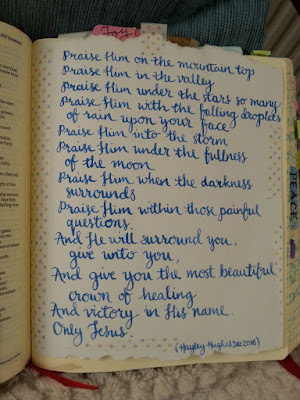 Joy!
Praise Him on the mountain top
Praise Him in the valley
Praise Him under the stars so many
Praise Him with the falling droplets
of rain upon your face
Praise Him into the storm
Praise Him under the fullness
of the moon
Praise Him when the darkness
surrounds
Praise Him within those painful
questions.
And He will surround you,
give unto you,
And give you the most beautiful
crown of healing
And victory in His name.
Only Jesus.
(Hayley Hughes Dec 2016)
PEACE